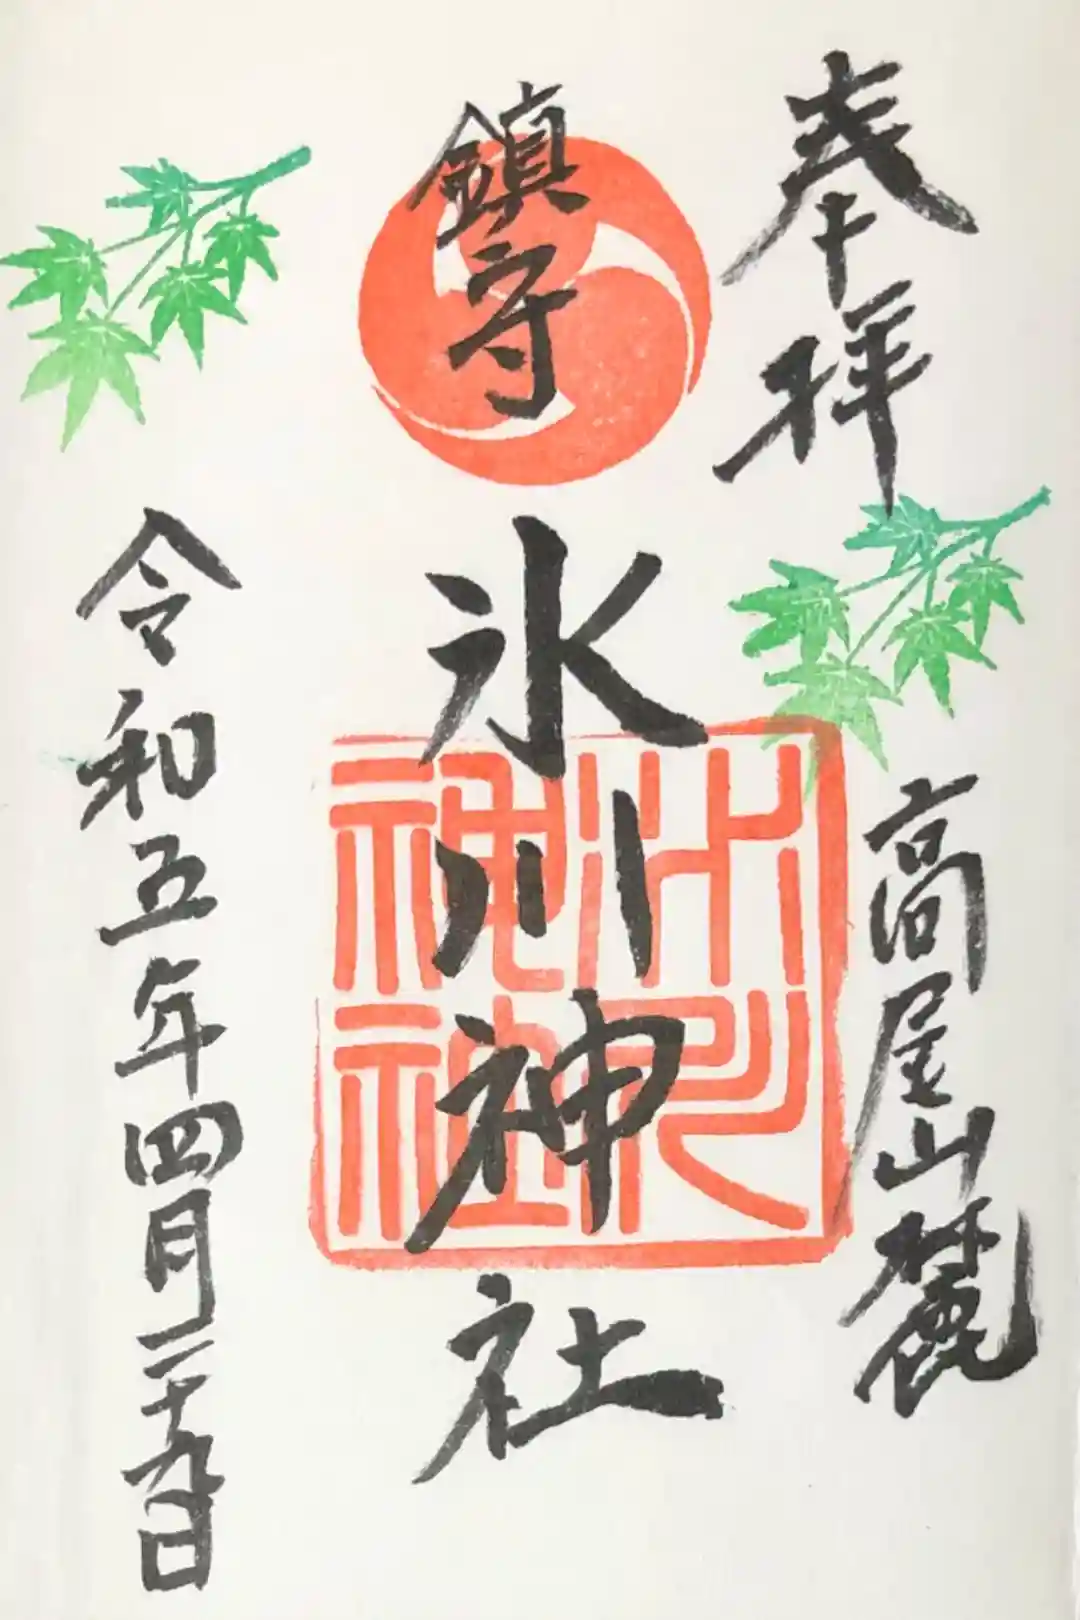 奉拝
高尾山麓
鎮守
氷川神社
氷川
神社
令和五年四月二十九日